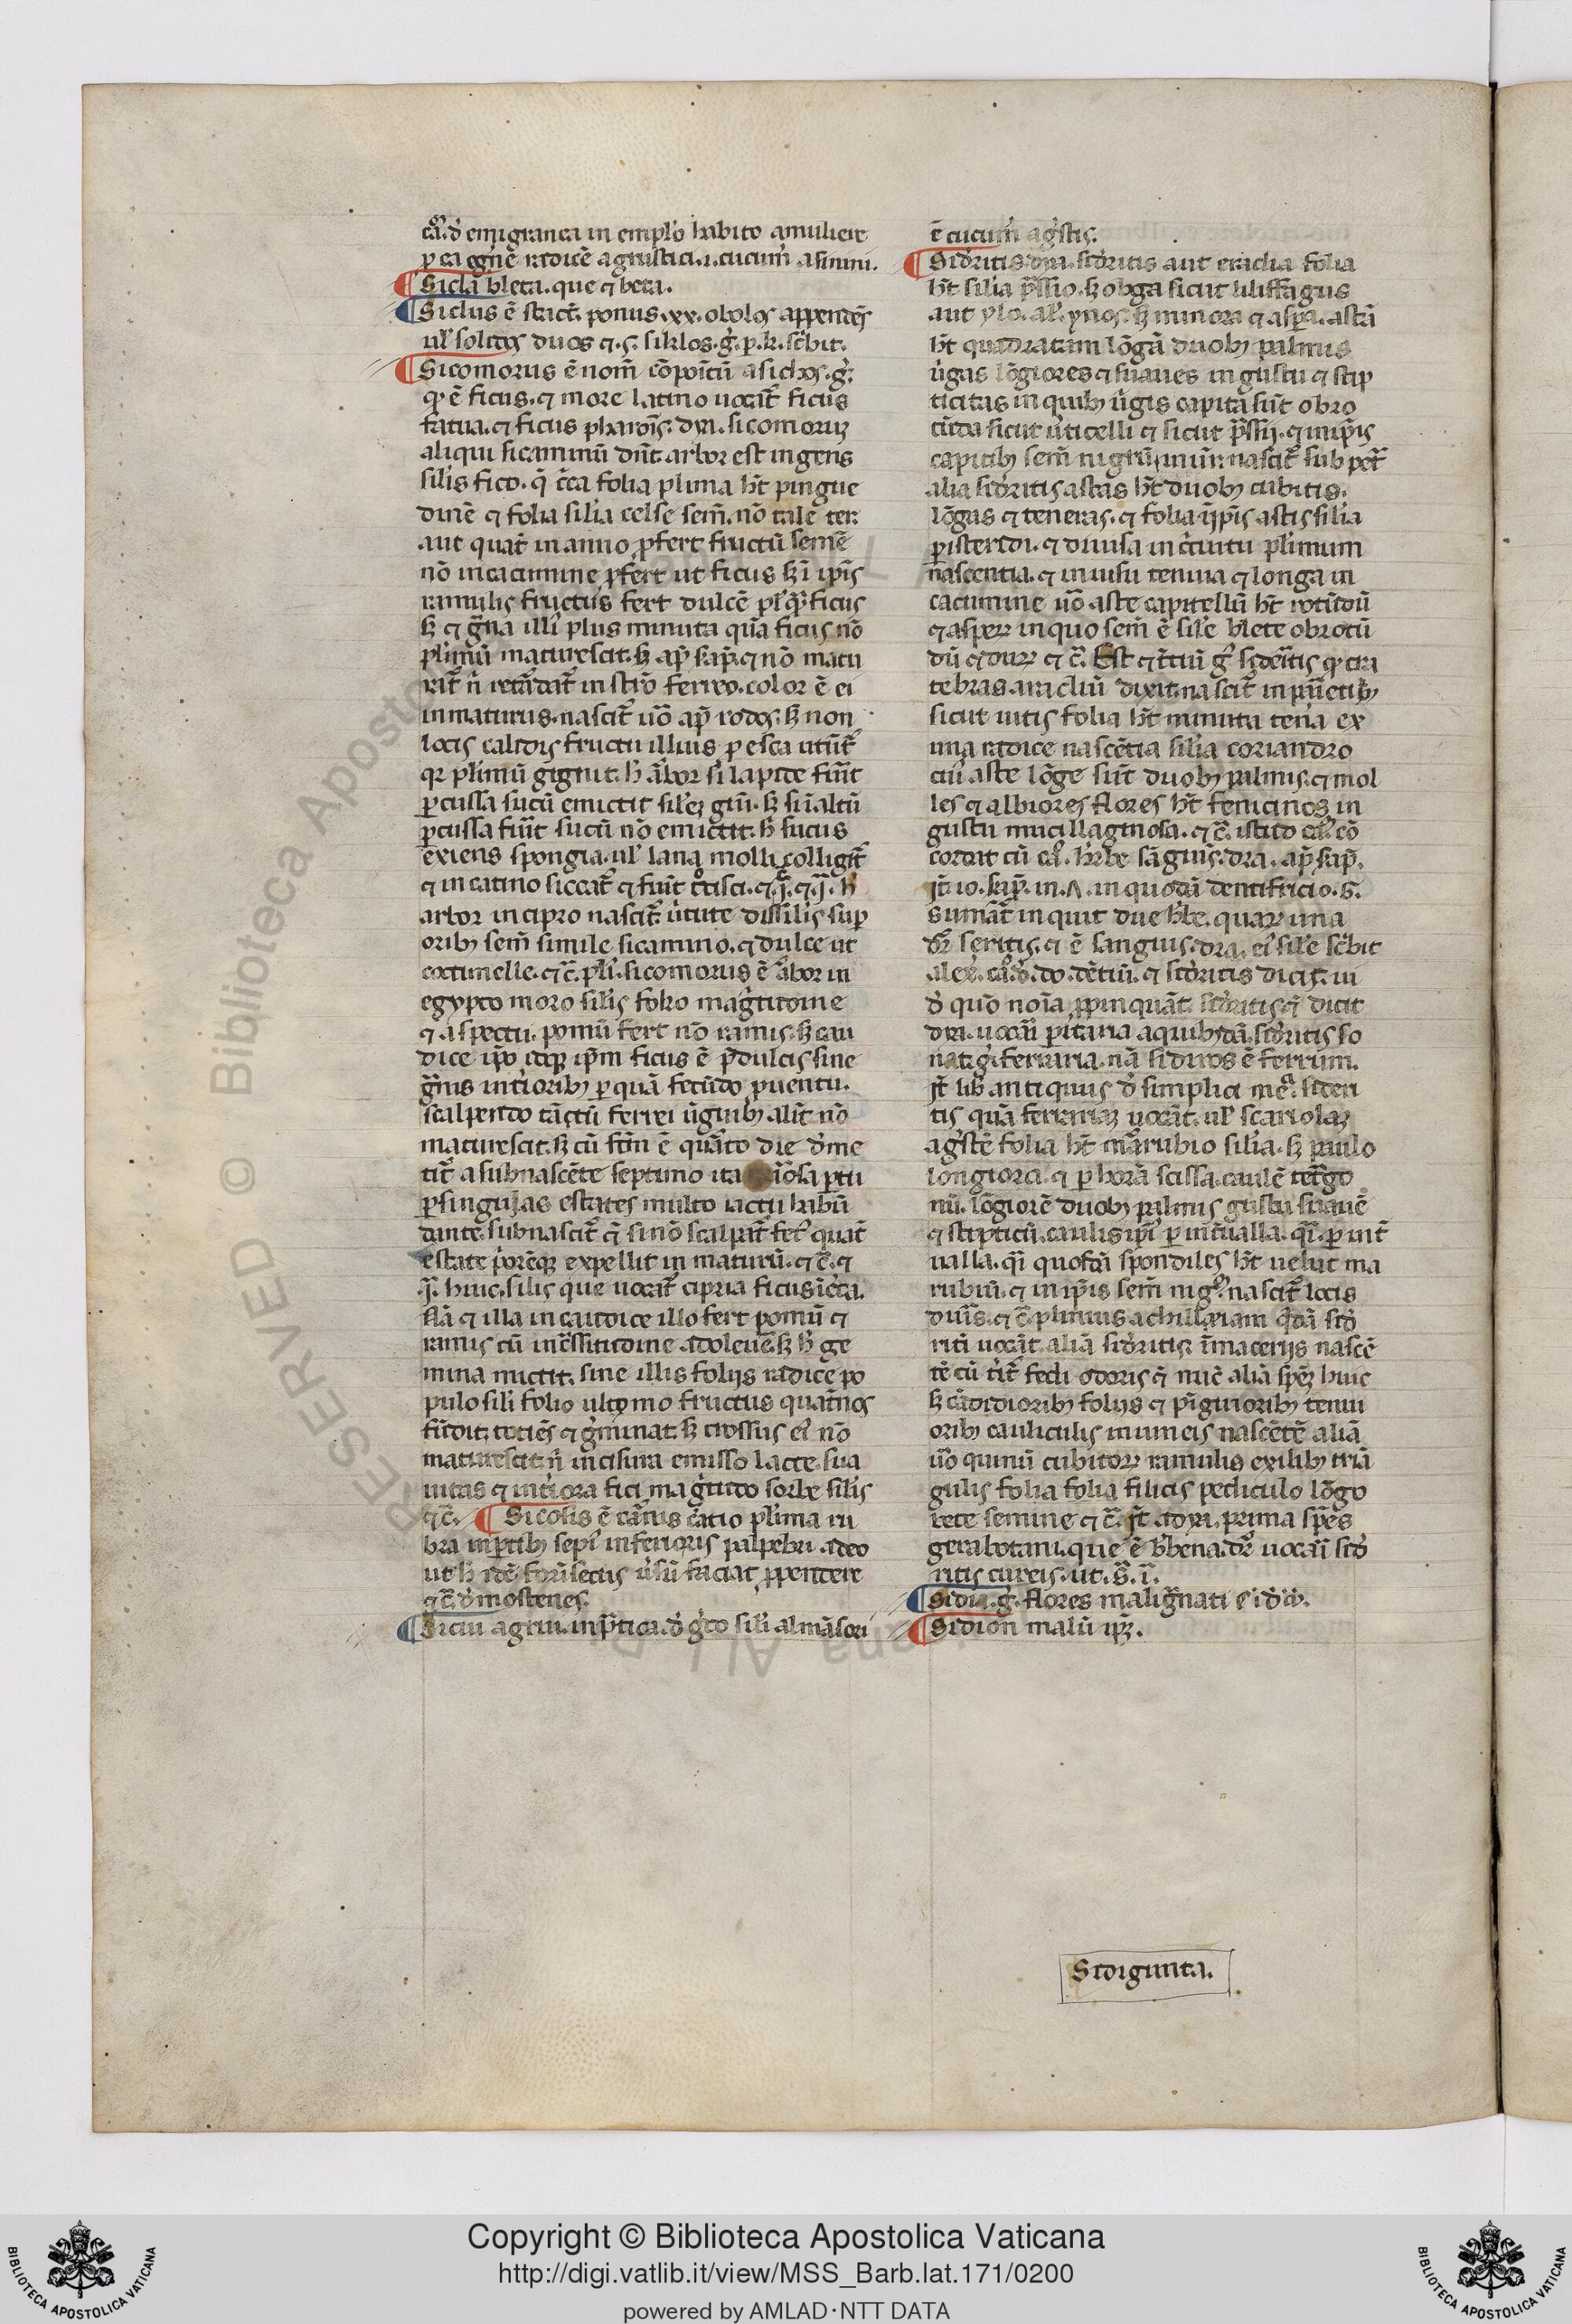 ca. d̉ emigranea in emplo habito a muliere
p ea ogn̄e radicē agrustici .i. cucum̉ asinini.
Sicla bleta. que ⁊ beta.
Siclus ē stact̉. ponus .xx. obolos appendēs
ul̉ solidos duos ⁊ .s. siklos. g̉. p. k. sc̉bit.
Sicomorus ē nom̄ cōpoītū a sichos. g̉.
qđ ē ficus. ⁊ more latino uocat̉ ficus
fatua. ⁊ ficus pharaōis. dya. sicomorus
aliqui sicaminū dn̄t. arbor est ingens
sil̉is fico. folia plima ht̄ pingue
dinē ⁊ folia sil̉ia celse sem̄. nō talē ter
aut quat̉ in anno ꝓfert fructū semē
nō in cacumine ꝓfert ut ficus sꝫ ī ip̄is
ramulis fructus fert dulcē ficus
sꝫ ⁊ gͣna illi plus minuta quā ficus nō
pl̉imū maturescit. color ē ei
inmaturus. nascit̉ uō ap̄ rodos. sꝫ non
locis calidis fructu illius p esca utūt̉
qꝛ pl̉imū gignit. h̉ arbor si lapide fūit
ꝑcussa sucū emictit sꝫ si ī altū
ꝑcussa fūit sucū nō emictit. h̉ sucus
exiens spongia. ul̉ lana molli colligit̉
⁊ in catino siccat̉ ⁊ fūit
arbor in cipro nascit̉. ūtute dissil̉is sup
orib; sem̄ simile sicamino. ⁊ dulce ut
coctimelle. ⁊ c̄. plỉ. sicomorus ē arbor in
egypto moro sil̉is folio magnitudine
⁊ aspectu. pomū fert nō ramis. sꝫ cau
dice ip̄o idq; ip̄m ficus ē p̄dulcis sine
gͣnis int̉iorib; ꝑquā fecūdo ꝓuentu.
scalpendo tātū ferrei ūguib; alit̉ nō
maturescit. sꝫ cū fcm̄ ē quarto die d̉me
tit̉ a subnascēte septimo ita
ꝑ singulas estates multo lactu habū
dante. subnascit̉ ⁊ si nō scalpat̉ quat̉
estate p̉orēq; expellit in maturū. ⁊ c̄. ⁊
huic. sil̉is que uocat̉ cipria ficus
nā ⁊ illa in caudice illo fert pomū ⁊
ramis cū incͣssitudine adoleuē sꝫ h̉ ge
mina mictit. sine illis folijs radice po
pulo sil̉i folio ultimo fructus quat̉nos
fūdit. totiēs ⁊ g̉minat. sꝫ crossus eỉ nō
maturescit n̄ incisura emisso lacte. sua
uitas ⁊ int̉iora fici magnitudo sorbe sil̉is
⁊ c̄. Sicosis ē carnis catio pl̉ima ru
bra in ꝑtib; sepỉ inferioris palpebri adeo
ut h̉ idē forīsecus ūsū faciat ꝓpendere
⁊ c̄. d̉mostenes.
Siciu agriu. in pͣtica. d̉ g̉co sil̉i almāsori
ē cucum̉ ag̉stis.
Sid̉ritis. dya. sid̉ritis aut eraclia folia
ht̄ sil̉ia p̄ssio. sꝫ obga sicut lilifagus
aut ylo. al̉. ynos. sꝫ minora ⁊ aspa. astā
ht̄ quadratam lōgā duob; palmis
ūgas lōgiores ⁊ suaues in gustu ⁊ stip
ticitas in quib; ūgis capita sūt obro
tūda sicut ūticelli ⁊ sicut p̄ssij. ⁊ in ip̄is
capitib; sem̄ nigrū inuīt nascit̉ sub pet̉
alia sid̉ritis astas ht̄ duob; cubitis.
lōgas ⁊ teneras. ⁊ folia ī ip̄is astis sil̉ia
pisteridi. ⁊ diuisa in c̉cuitu pl̉imum
nascentia. ⁊ in iusu tenuia ⁊ longa in
cacumine uō aste capitellū ht̄ rotūdū
⁊ asperꝝ in quo sem̄ ē sil̉e blete obrotū
dū ⁊ durꝝ ⁊ c̄. Est ⁊ t̉ciū gn̉ sid̉ritis qđ cra
tebras aracliū dixit. nascit̉ in parietib;
sicut uitis folia ht̄ minuta ten̉a ex
una radice nascētia sil̉ia coriandro
cuỉ aste lōge sūt duob; palmis. ⁊ mol
les ⁊ albiores flores ht̄ fenicinos in
gustu mucillaginosa. ⁊ c̄. istud cōl̉ cō
cordat cū ca. h̉be sāguis. dra. ap̄ sap̄.
it̄ io. sap̄. in. Λ. in quodā dentifricio. S.
sumāt̉ inquit due h̉be. quarꝝ una
dr̄ seritis. ⁊ ē sanguis. dra. eỉ sil̉e sc̉bit
alex̉. ca. d̉. do. dētiū. ⁊ sid̉ritis dicit̉. in
d̉ quō noīa ꝓpinquāt. sid̉ritis. ⁊ dicit
dya. uocari pitaria a quib;dā. sid̉ritis so
nat. g̉. ferraria. nā sidiros ē ferrum.
it̄ lib̉ antiquus d̉ simplici me. sideri
tis quā ferrariaꝫ uocāt. ul̉ scariolaꝫ
ag̉stē folia ht̄ marrubio sil̉ia. sꝫ paulo
longiora. ⁊ p horā scissa. caulē tet̉go
nū. lōgiorē duob; palmis gustu suauē
⁊ stipticū. caulis ip̄ỉ ꝑ int̉ualla. qỉ. ꝑ int̉
ualla. qỉ quosdā spondiles ht̄ uelut ma
rubiū. ⁊ in ip̄is sem̄ nigͦꝝ. nascit̉ locis
duris. ⁊ c̄. plinius achillariam qͣdā sid̉
riti uocāt. aliā sid̉ritis. ī macerijs nascē
tē cū t̉it̉ fedi odoris ⁊ nūc aliā spēꝫ huic
sꝫ cādidiorib; folijs ⁊ pīguiorib; tenui
orib; cauliculis in uineis nascētē. aliā
uō quinū cubitorꝝ ramulis exilib; triā
gulis folia folia filicis pediculo lōgo
rete semine ⁊ c̄. it̄ adya. prima spēs
gerabotani. que ē ūbena. dr̄ uocari sid̉
ritis cureis. ut. S. i.
Sidia. g̉. flores malignati
Sidion malū ip̄ꝫ.
Sidigunta.
Copyright © Biblioteca Apostolica Vaticana
http://digi.vatlib.it/view/MSS_Barb.lat.171/0200
powered by AMLAD·NTT DATA